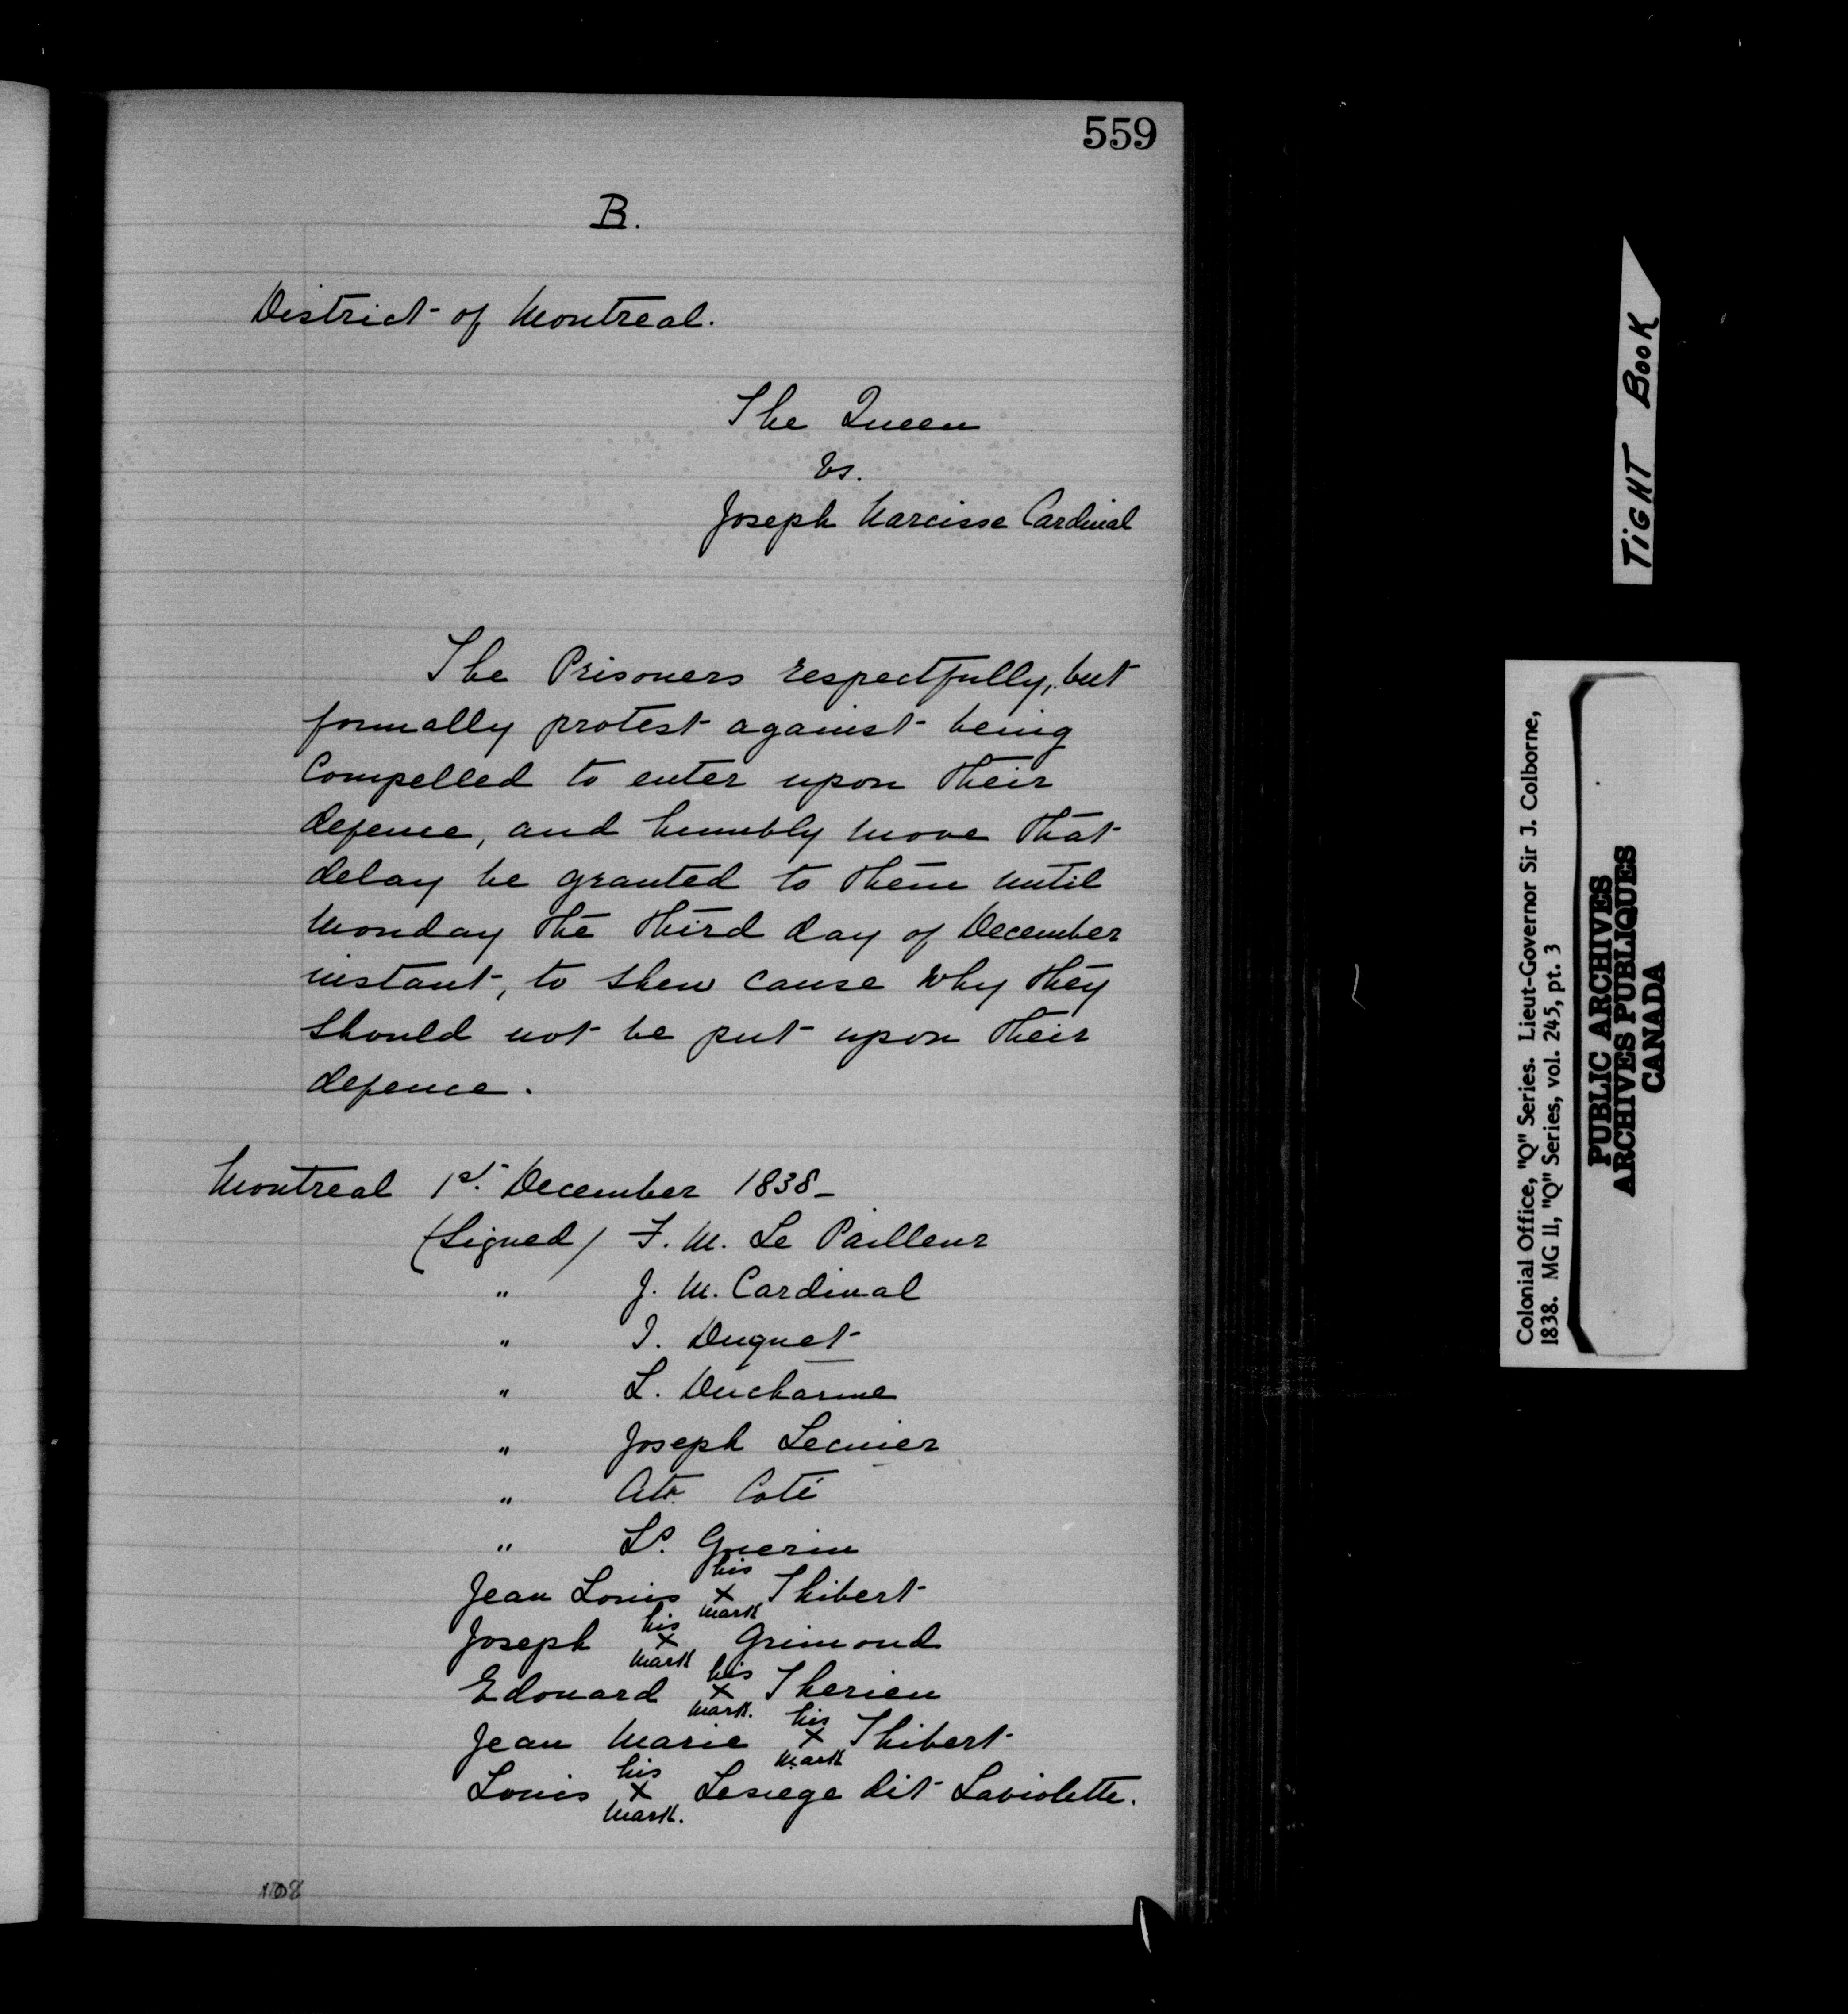 559
B.
District of Montreal.
The Queen
Vs.
Joseph Narcisse Cardinal
The Prisoners respectfully, but
formally protest against being
Compelled to enter upon their
defence, and humbly move that
delay be granted to them until
Monday the third day of December
instant, to shew cause why they
should not be put upon their
defence.
Montreal 1st. December 1838_
(Signed) F. M. Le Pailleur
" J. N. Cardinal
" J. Duquet
" L. Ducharme
" Joseph Lecuier
" Coté
" Ls. Guerin
Jean Louis his x mark Thibert
Joseph his x mark Grimond
Edouard his x mark. Therien
Jean Marie his x mark Thibert
Louis his x mark. Lesiege dit Laviolette.
TIGHT BOOK
Colonial Office, "Q" Series. Lieut-Governor Sir J. Colborne,
1838. MG 11, "Q" Series, vol. 245, pt. 3
PUBLIC ARCHIVES
ARCHIVES PUBLIQUES
CANADA